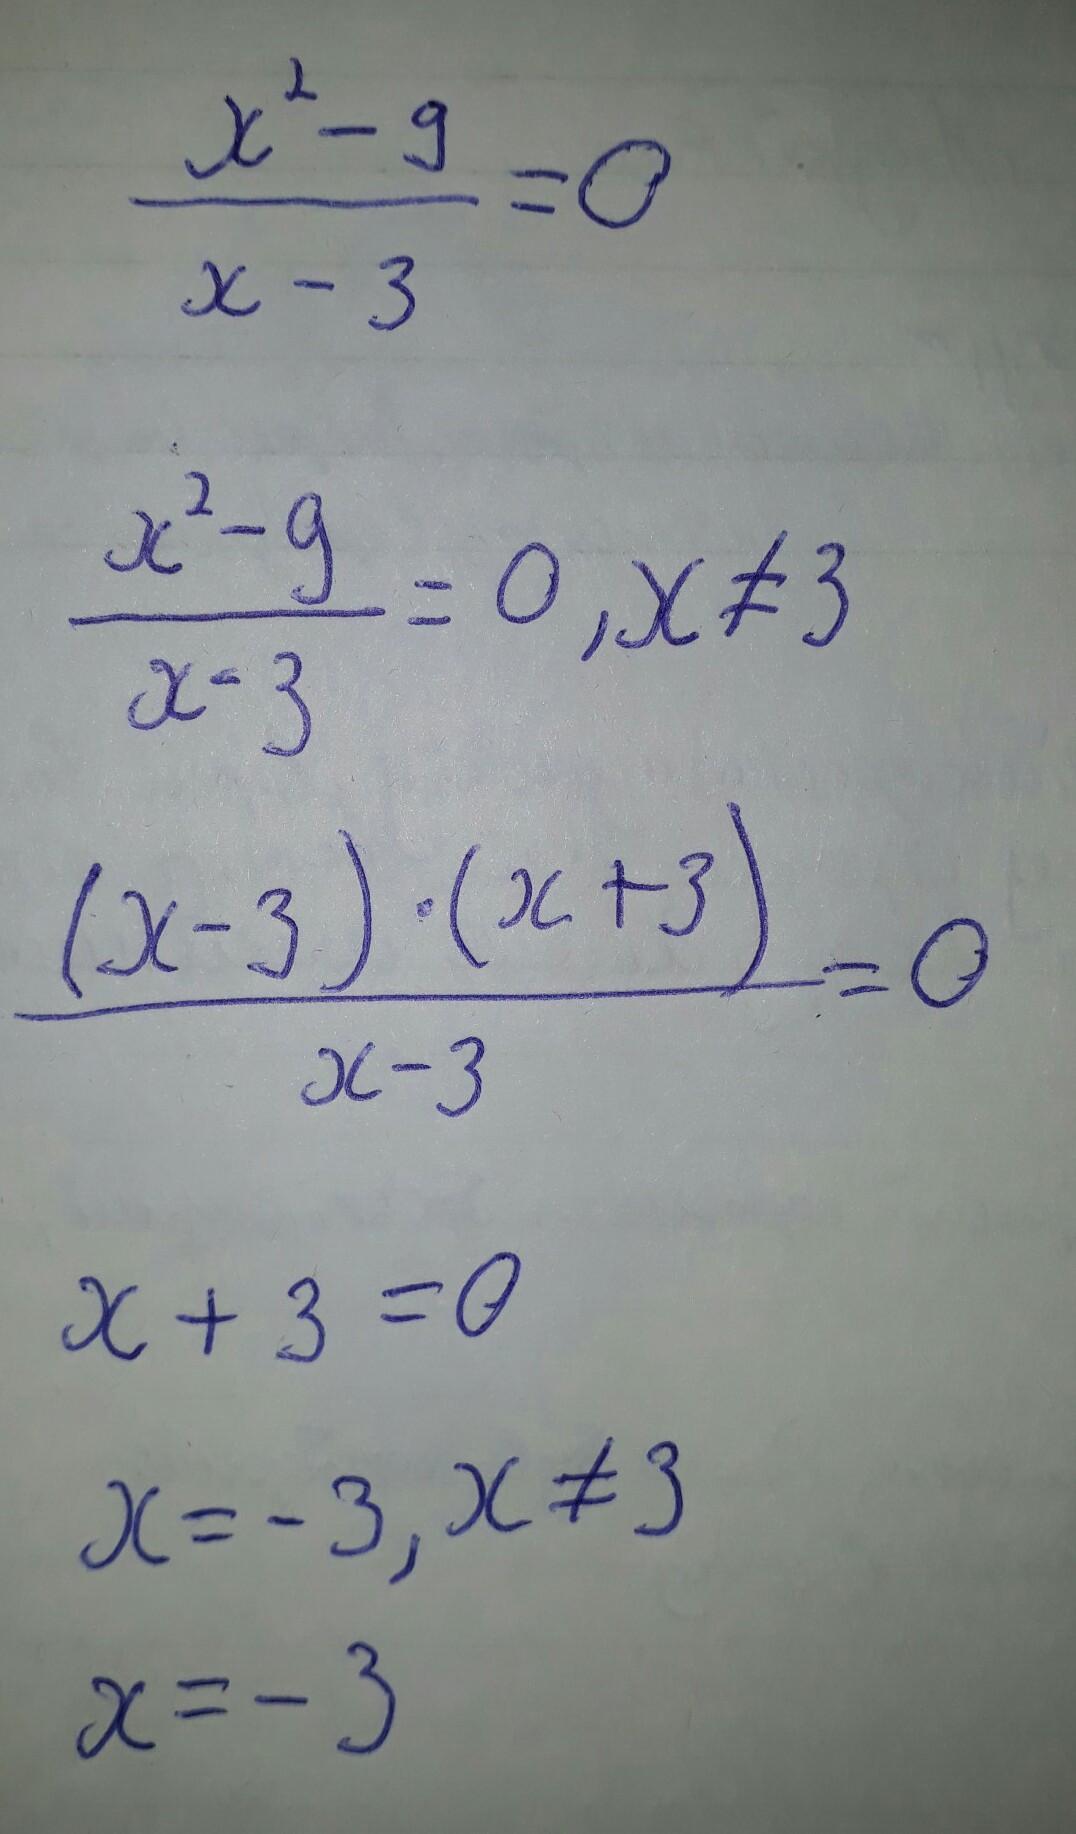 x² - 9
x - 3
= 0
x² - 9
x - 3
= 0, x ≠ 3
(x - 3) · (x + 3)
x - 3
= 0
x + 3 = 0
x = -3, x ≠ 3
x = -3